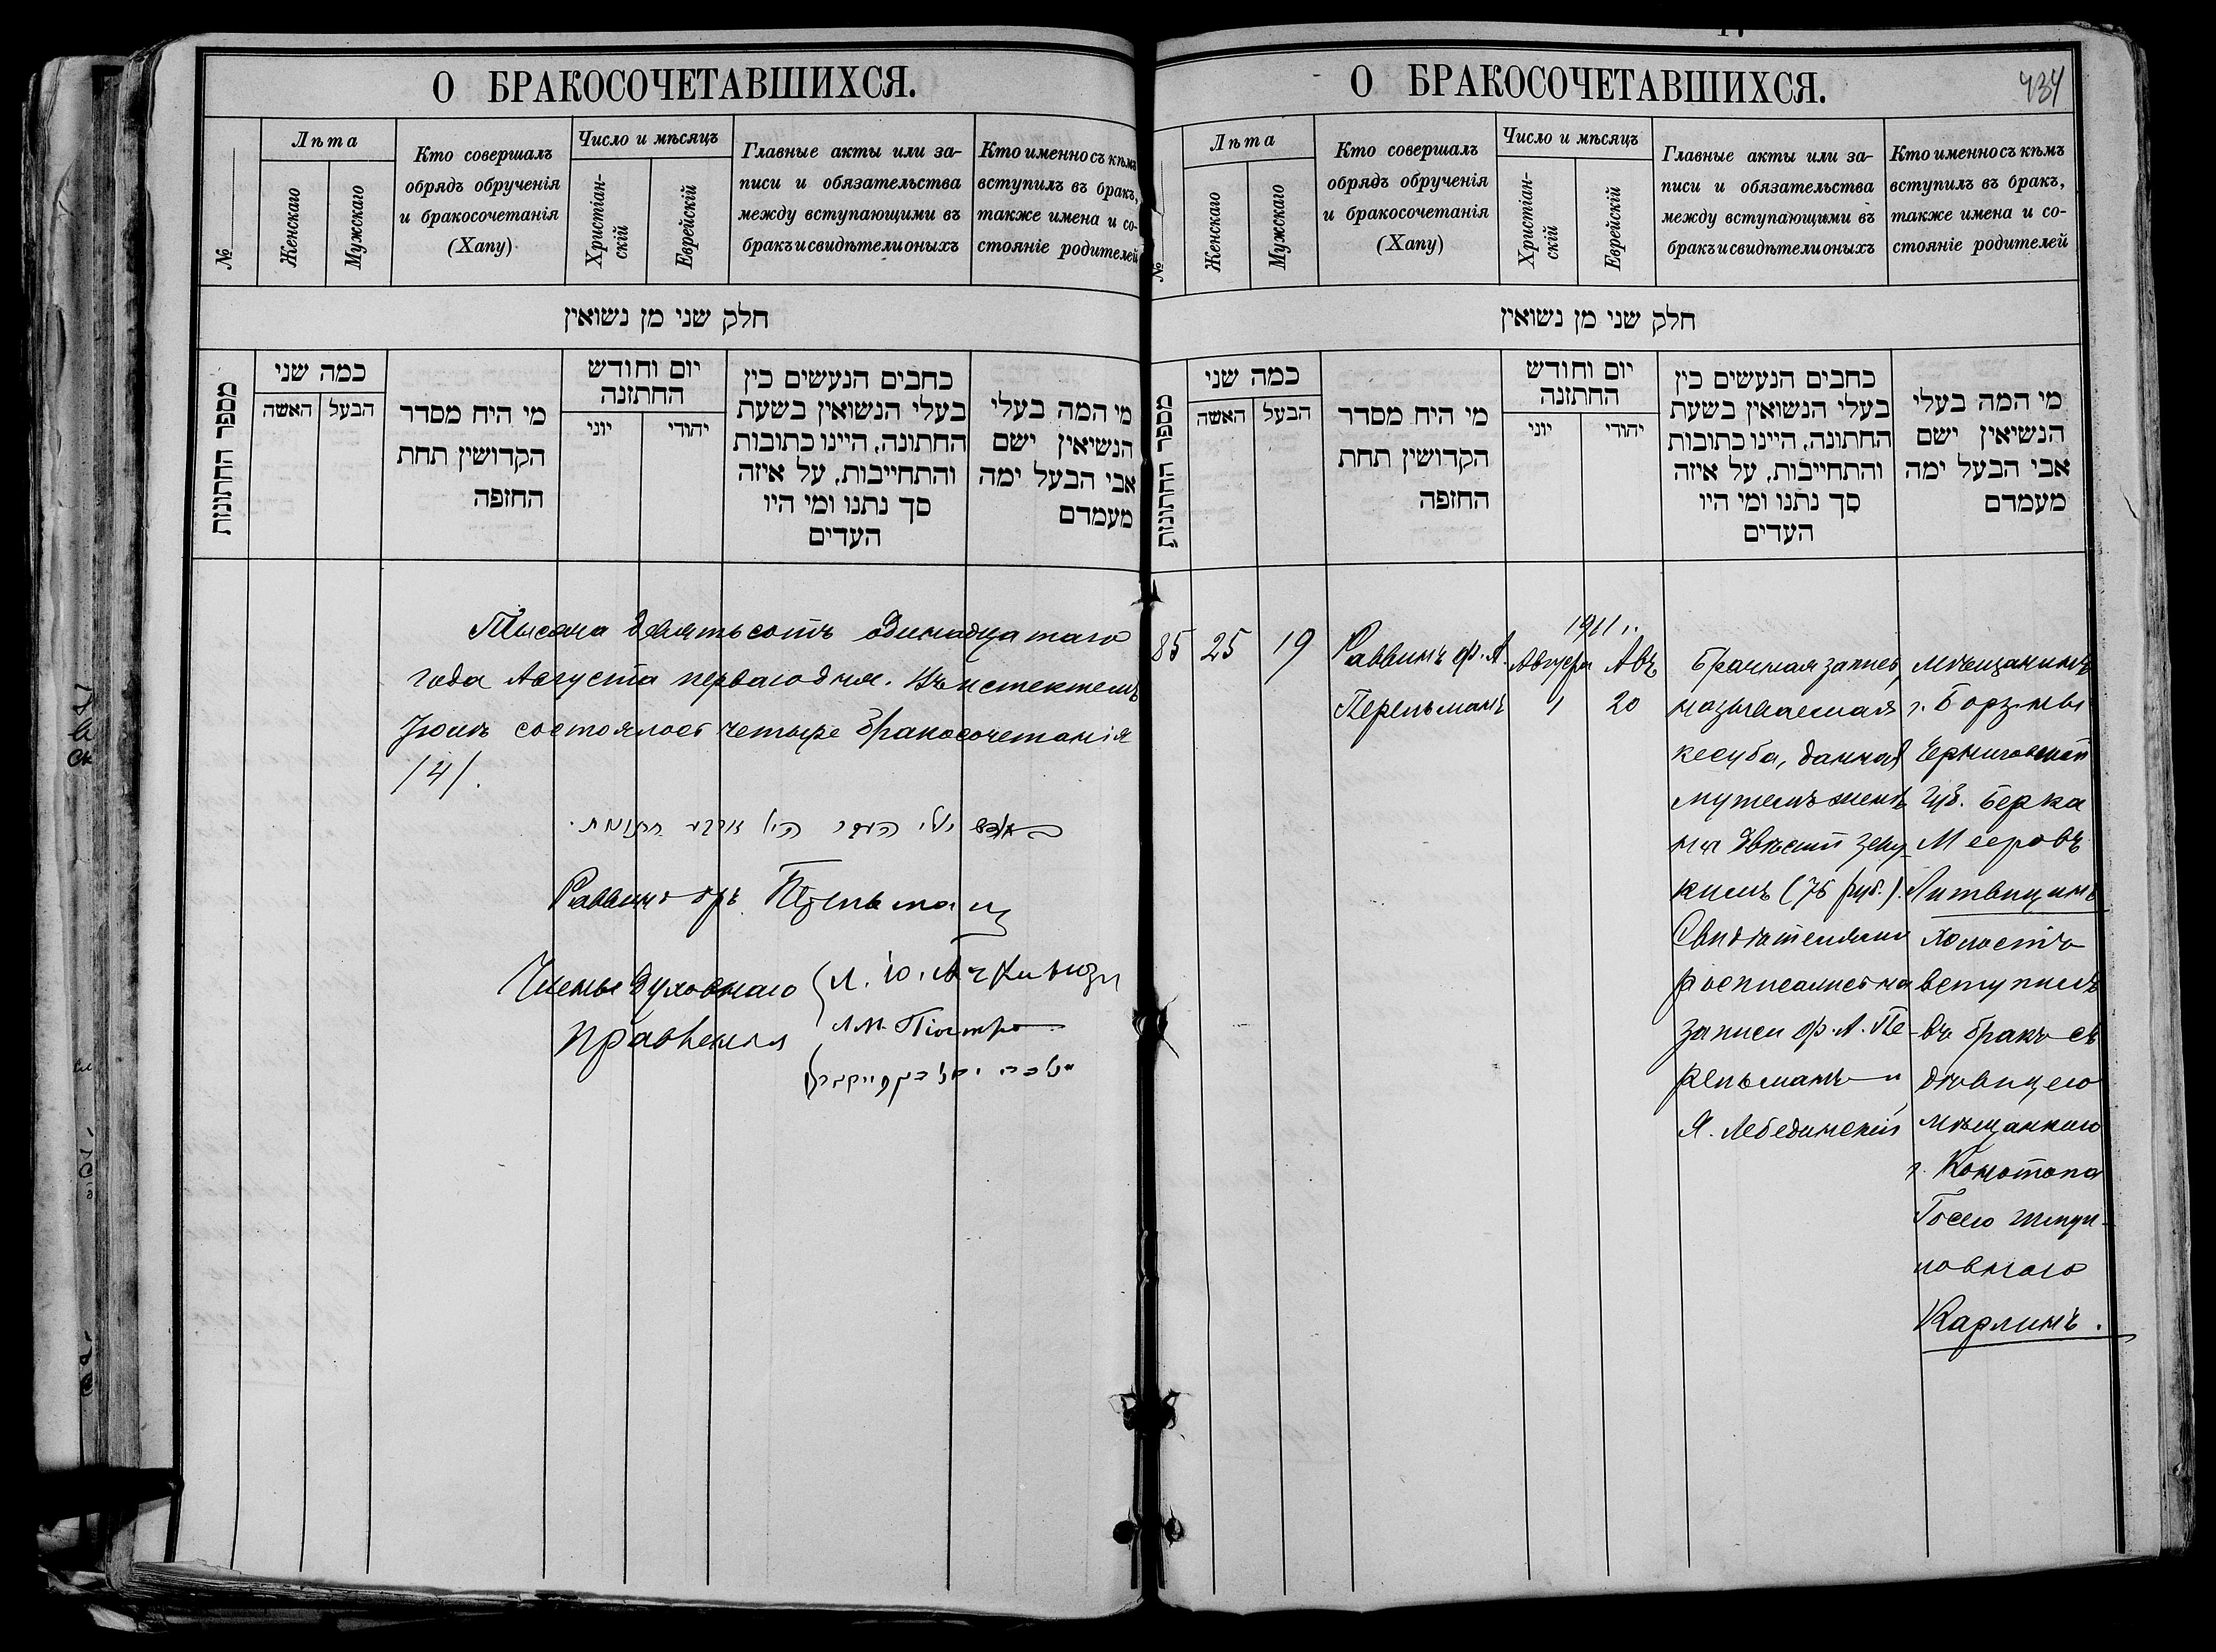 О БРАКОСОЧЕТАВШИХСЯ.
№
Лѣта
Женскаго
Мужскаго
Кто совершалъ
обрядъ обрученія
и бракосочетанія
(Хапу)
Число и мѣсяцъ
Христіан-
скій
Еврейскій
Главные акты или за-
писи и обязательства
между вступающими въ
бракъ и свидѣтели оныхъ
Кто именно съ кѣмъ
вступилъ въ бракъ,
также имена и со-
стояніе родителей
חלק שני מן נשואין
מספר החתונות
כמה שני
האשה
הבעל
מי היח מסדר
הקדושין תחת
החופה
יום וחודש
החתונה
יוני
יהודי
כתבים הנעשים בין
בעלי הנשואין בשעת
החתונה, היינו כתובות
והתחייבות, על איזה
סך נתנו ומי היו
העדים
מי המה בעלי
הנשיאין ישם
אבי הבעל ימה
מעמדם
Тысяча девятьсотъ одинадцатаго
года Августа перваго дня. Въ истекшемъ
Іюлѣ состоялось четыре бракосочетанія
/4/.
Раввинъ Перельман
Члены Духовнаго
Правленія
О БРАКОСОЧЕТАВШИХСЯ.
434
№
Лѣта
Женскаго
Мужскаго
Кто совершалъ
обрядъ обрученія
и бракосочетанія
(Хапу)
Число и мѣсяцъ
Христіан-
скій
Еврейскій
Главные акты или за-
писи и обязательства
между вступающими въ
бракъ и свидѣтели оныхъ
Кто именно съ кѣмъ
вступилъ въ бракъ,
также имена и со-
стояніе родителей
חלק שני מן נשואין
מספר החתונות
כמה שני
האשה
הבעל
מי היח מסדר
הקדושין תחת
החופה
יום וחודש
החתונה
יוני
יהודי
כתבים הנעשים בין
בעלי הנשואין בשעת
החתונה, היינו כתובות
והתחייבות, על איזה
סך נתנו ומי היו
העדים
מי המה בעלי
הנשיאין ישם
אבי הבעל ימה
מעמדם
85
25
19
Раввинъ Ф. А.
Перельманъ
1911 г.
Августа
1
Авъ
20
Брачная запись,
называемая
кесуба, данная
мужемъ женѣ
на двѣсти зеку-
кимъ (75 руб.).
Свидѣтелями
росписались на
записи Ф. А. Пе-
рельманъ и
Я. Лебединскій
Мѣщанинъ
г. Борзны
Черниговской
губ. Берка
Мееровъ
Литвинъ
холостъ
вступилъ
въ бракъ съ
дѣвицею
мѣщанкою
г. Конотопа
Карлинъ.